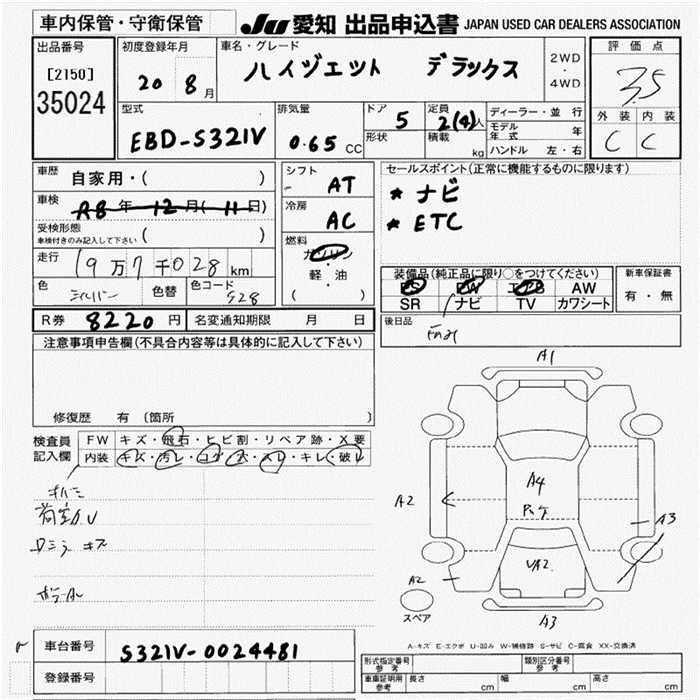 車内保管・守衛保管
JU 愛知 出品申込書 JAPAN USED CAR DEALERS ASSOCIATION
出品番号
[2150]
35024
初度登録年月
20 8月
車名・グレード
ハイゼット デラックス
2WD
・
4WD
評価点
3.5
外装 内装
C C
型式
EBD-S321V
排気量
0.65 CC
ドア 5
形状
定員 2(4)人
積載 kg
ディーラー・並行
モデル年式 年
ハンドル 左・右
車歴 自家用・( )
車検 R8年 12月(11日)
受検形態
車検付きのみ記入して下さい ( )
走行 19万7千028km
色 シルバー 色替 色コード S28
シフト AT
冷房 AC
燃料
ガソリン
軽・油
( )
セールスポイント(正常に機能するものに限ります)
* ナビ
* ETC
装備品(純正品に限り○をつけてください)
PS PW エアB AW
SR ナビ TV カワシート
新車保証書
有・無
R券 8220円 名変通知期限 月 日
後日品
注意事項申告欄(不具合内容等は具体的に記入して下さい)
修復歴 有 (箇所 )
検査員
記入欄
FW キズ・飛石・ヒビ割・リペア跡・X要
内装 キズ・汚レ・コゲ・穴・スレ・キレ・破レ
キズ
A1
A2
A4
A3
UA2
A2
スペア
A3
A-キズ E-エクボ U-凹み W-補修跡 S-サビ C-腐食 XX-交換済
車台番号 S321V-0024481
登録番号
型式指定番号 参考
類別区分番号 参考
車庫証明用 参考 長さ cm 幅 cm 高さ cm